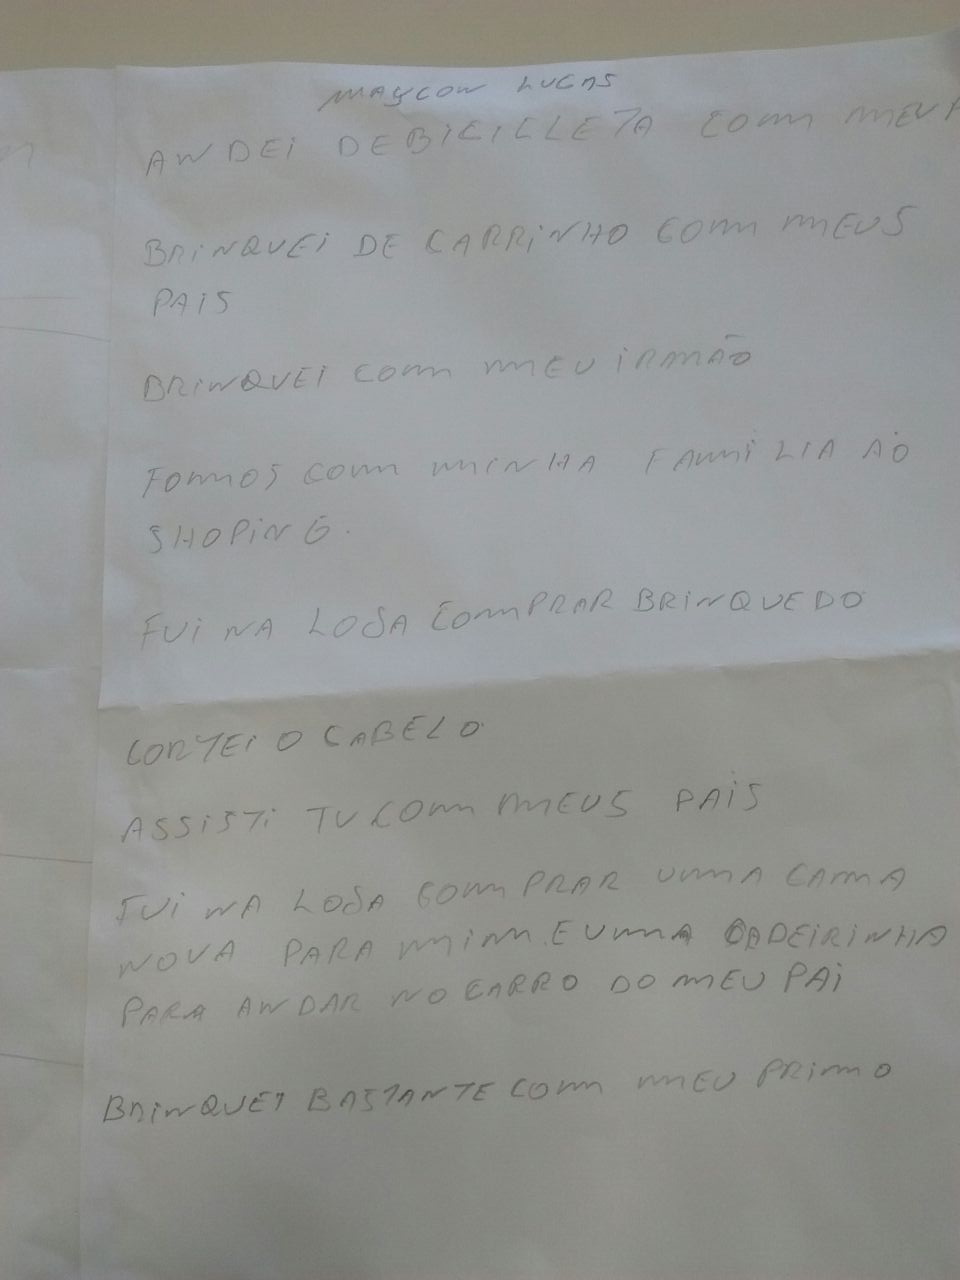 MAYCON LUCAS
ANDEI DE BICICLETA COM MEU
BRINQUEI DE CARRINHO COM MEUS
PAIS
BRINQUEI COM MEU IRMÃO
FOMOS COM MINHA FAMILIA AO
SHOPING.
FUI NA LOJA COMPRAR BRINQUEDO
CORTEI O CABELO
ASSISTI TV COM MEUS PAIS
FUI NA LOJA COMPRAR UMA CAMA
NOVA PARA MIM E UMA CADEIRINHA
PARA ANDAR NO CARRO DO MEU PAI
BRINQUEI BASTANTE COM MEU PRIMO